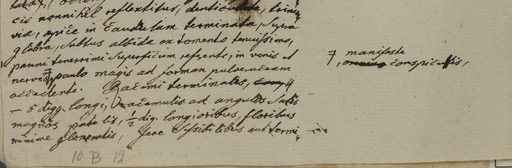 cis nonnihil reflexitus, denticulata, trivi-
via, apice in caudulam terminata, supra
glabra, subtus albida ex tomento tenuissimo,
panni tenerrimi superficiem referente, in venis et
nervis 7 paulo magis ad formam pulveraceam
accedente. Racemi terminales,
— 5 digg. longi, racemulis ad angulos satis
magnos patulis, ½ dig. longioribus, floribus
minime glomeratis, fere sessilibus aut termi
7 manifeste
conspicuis,
10 B 12